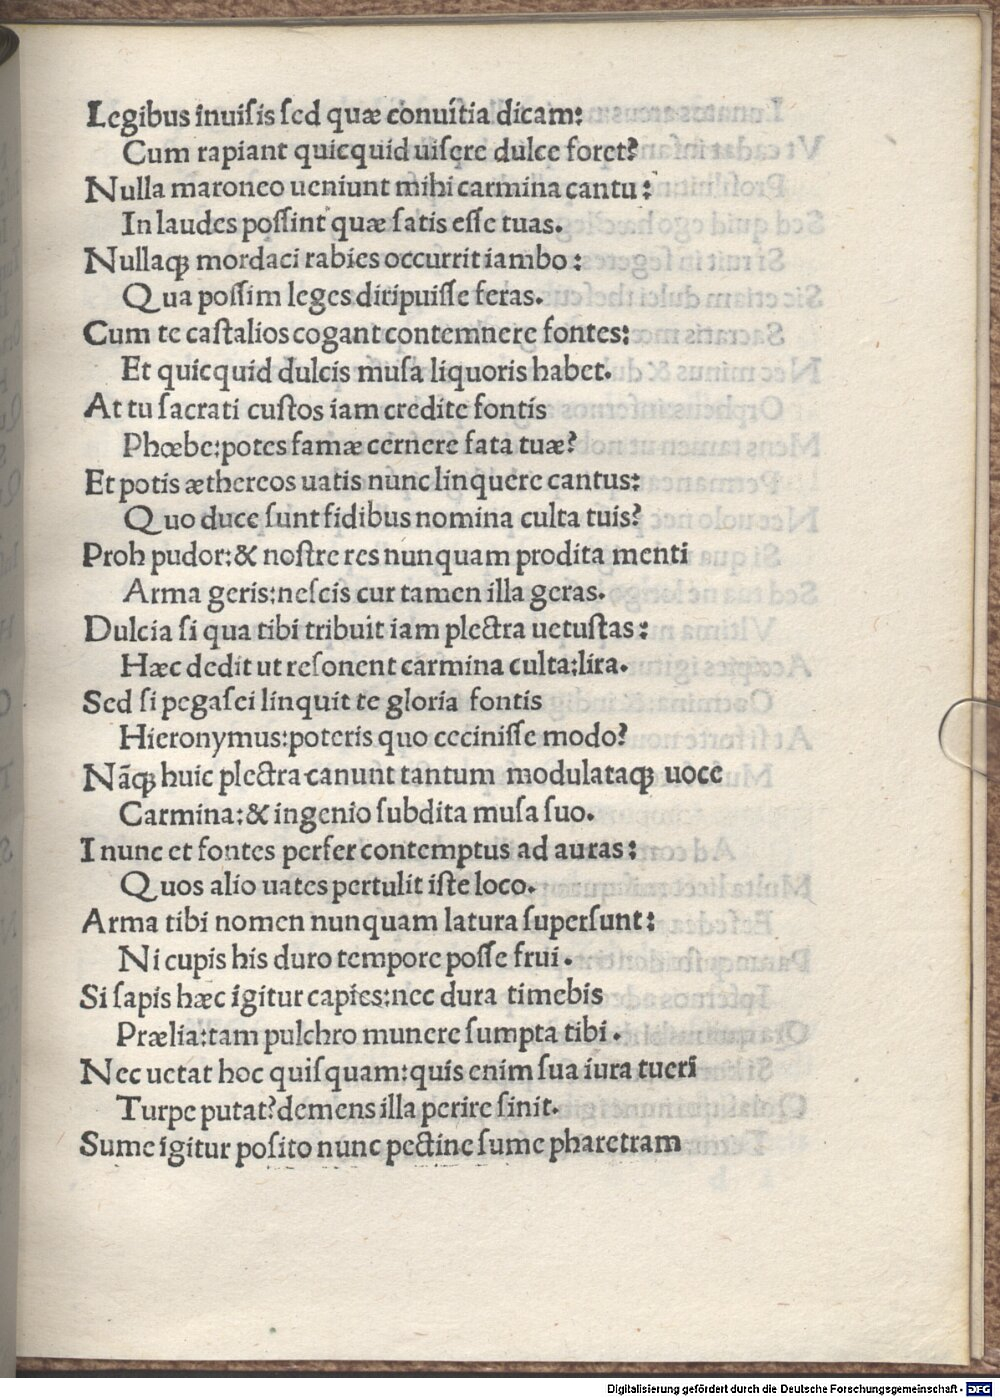 Legibus inuiſis ſed quæ conuitia dicam:
Cum rapiant quicquid uiſere dulce foret?
Nulla maroneo ueniunt mihi carmina cantu:
In laudes poſſint quæ ſatis eſſe tuas.
Nullaqꝫ mordaci rabies occurrit iambo:
Qua poſſim leges diripuiſſe feras.
Cum te caſtalios cogant contemnere fontes:
Et quicquid dulcis muſa liquoris habet.
At tu ſacrati cuſtos iam credite fontis
Phœbe:potes famæ cernere fata tuæ?
Et potis æthereos uatis nunc linquere cantus:
Quo duce ſunt fidibus nomina culta tuis?
Proh pudor:& noſtre res nunquam prodita menti
Arma geris:neſcis cur tamen illa geras.
Dulcia ſi qua tibi tribuit iam plectra uetuſtas:
Hæc dedit ut reſonent carmina culta:lira.
Sed ſi pegaſei linquit te gloria fontis
Hieronymus:poteris quo ceciniſſe modo?
Nāqꝫ huic plectra canunt tantum modulataqꝫ uoce
Carmina:& ingenio ſubdita muſa ſuo.
I nunc et fontes perfer contemptus ad auras:
Quos alio uates pertulit iſte loco.
Arma tibi nomen nunquam latura ſuperſunt:
Ni cupis his duro tempore poſſe frui.
Si ſapis hæc igitur capies:nec dura timebis
Prælia:tam pulchro munere ſumpta tibi.
Nec uetat hoc quiſquam:quis enim ſua iura tueri
Turpe putat?demens illa perire ſinit.
Sume igitur poſito nunc pectine ſume pharetram
Digitalisierung gefördert durch die Deutsche Forschungsgemeinschaft - DFG